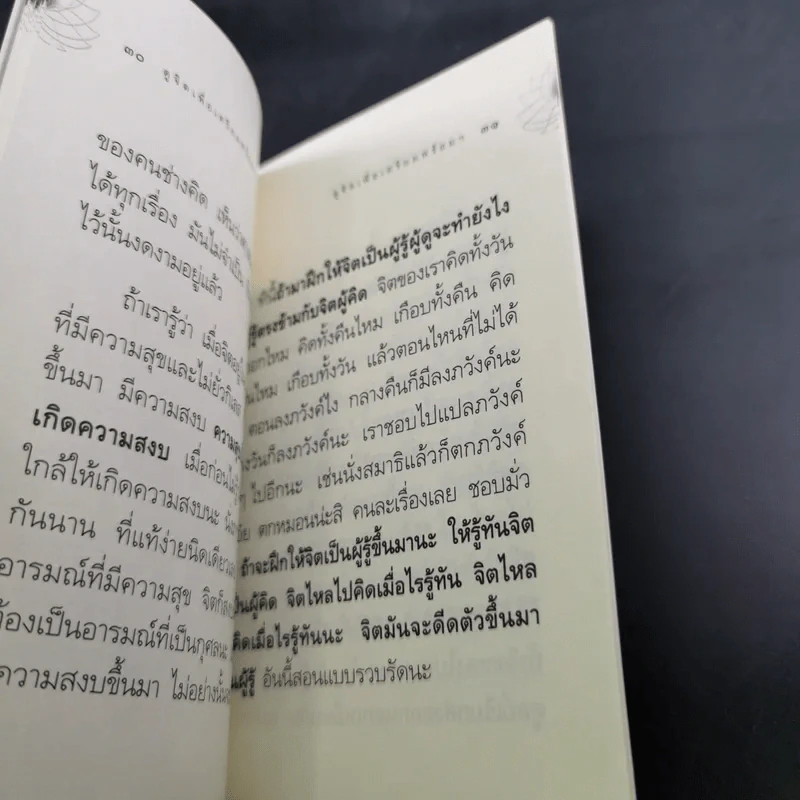 ๓๐ ดูจิตเพื่อเตรียม
ของคนช่างคิด เห็น
ได้ทุกเรื่อง มันไม่จำเป็น
ไว้นั้นงดงามอยู่แล้ว
ถ้าเรารู้ว่า เมื่อจิตอยู่
ที่มีความสุขและไม่ยั่วกิเลส
ขึ้นมา มีความสงบ
เกิดความสงบ เมื่อก่อน
ใกล้ให้เกิดความสงบนะ
กันนาน ที่แท้ง่ายนิดเดียว
อารมณ์ที่มีความสุข จิตก็
ต้องเป็นอารมณ์ที่เป็นกุศลนะ
ความสงบขึ้นมา ไม่อย่างนั้น
๓๑
ถ้ามาฝึกให้จิตเป็นผู้รู้ผู้ดูจะทำยังไง
ตรงข้ามกับจิตผู้คิด จิตของเราคิดทั้งวัน
ไหม คิดทั้งคืนไหม เกือบทั้งคืน คิด
ไหม เกือบทั้งวัน แล้วตอนไหนที่ไม่ได้
ตอนลงภวังค์ไง กลางคืนก็มีลงภวังค์นะ
วันก็ลงภวังค์นะ เราชอบไปแปลภวังค์
ไปอีกนะ เช่นนั่งสมาธิแล้วก็ตกภวังค์
ตกหมอนน่ะสิ คนละเรื่องเลย ชอบมั่ว
ถ้าจะฝึกให้จิตเป็นผู้รู้ขึ้นมานะ ให้รู้ทันจิต
เป็นผู้คิด จิตไหลไปคิดเมื่อไรรู้ทัน จิตไหล
คิดเมื่อไรรู้ทันนะ จิตมันจะดีดตัวขึ้นมา
ผู้รู้ อันนี้สอนแบบรวบรัดนะ